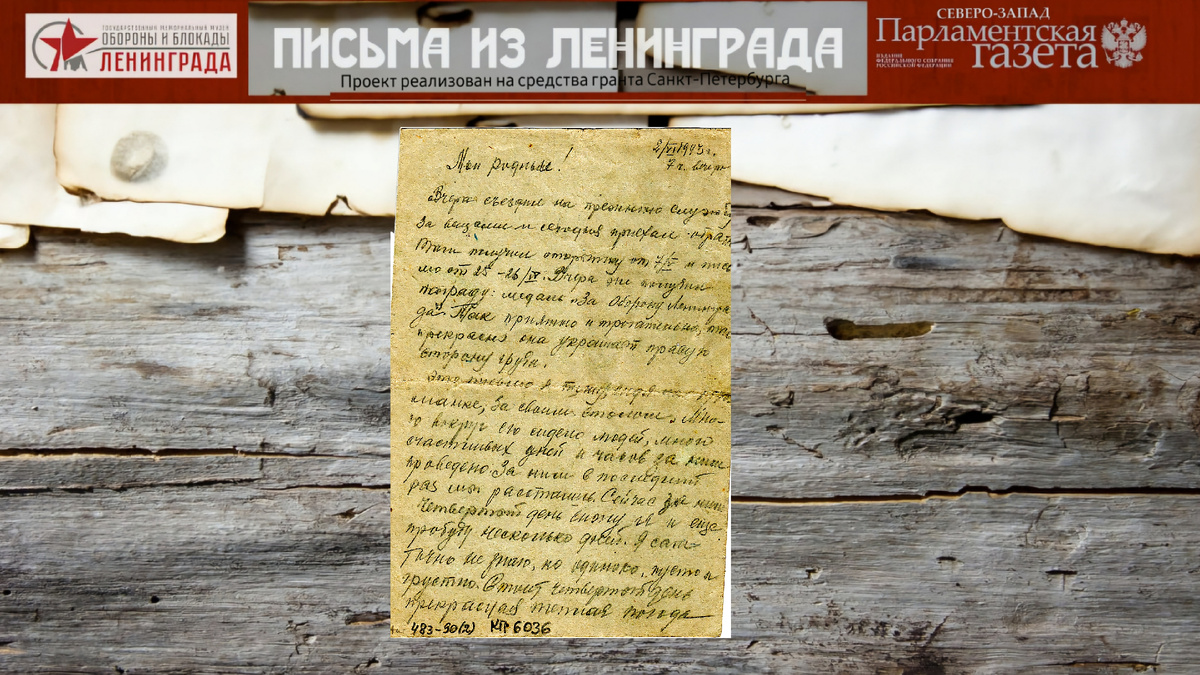 ГОСУДАРСТВЕННЫЙ МЕМОРИАЛЬНЫЙ МУЗЕЙ
ОБОРОНЫ И БЛОКАДЫ
ЛЕНИНГРАДА
ПИСЬМА ИЗ ЛЕНИНГРАДА
Проект реализован на средства гранта Санкт-Петербурга
СЕВЕРО-ЗАПАД
Парламентская
газета
ИЗДАНИЕ
ФЕДЕРАЛЬНОГО СОБРАНИЯ
РОССИЙСКОЙ ФЕДЕРАЦИИ
2/VI 1943 г.
7 ч. вечера
Мои родные!
Вчера ездил на прежнюю службу
За вещами и сегодня приехал
получил открытку от 7/V и пись
мо от 25-26/IV. Вчера же получил
награду: медаль "За Оборону Ленингра
да". Так приятно и трогательно, так
прекрасно она украшает правую
сторону груди.
Это письмо я пишу, сидя
за своим столом. Мно-
го вокруг его сидело людей, много
счастливых дней и часов за ним
проведено. За ним в последний
раз мы расстались. Сейчас за ним
Четвертый день сижу я и еще
пробуду несколько дней. Я сам
точно не знаю, но одиноко, пусто и
грустно. Стоит четвертый день
прекрасная теплая погода
483-90(2) КП 6036